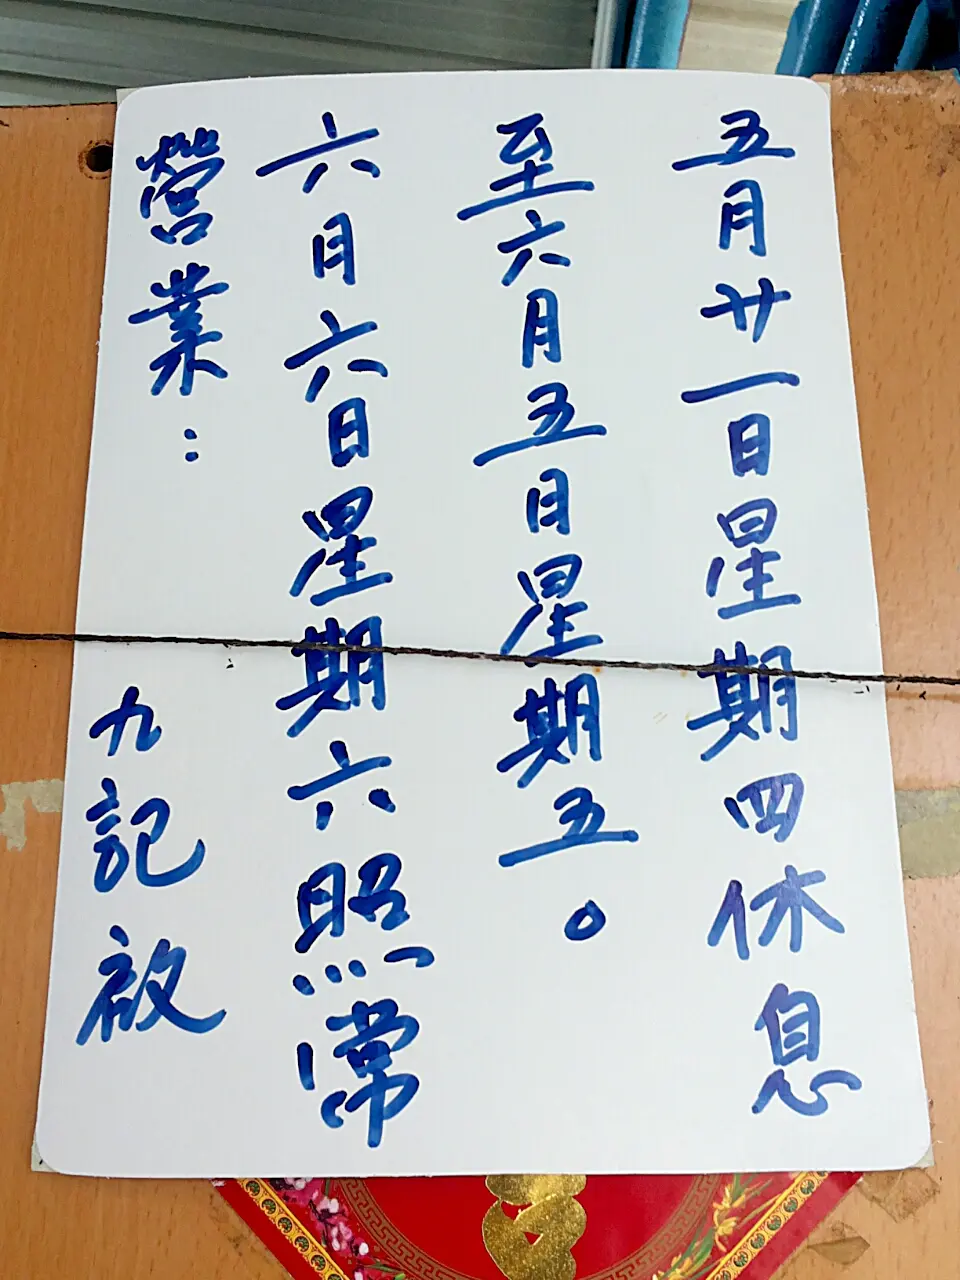 五月廿一日星期四休息
至六月五日星期五。
六月六日星期六照常
營業：
九記啟